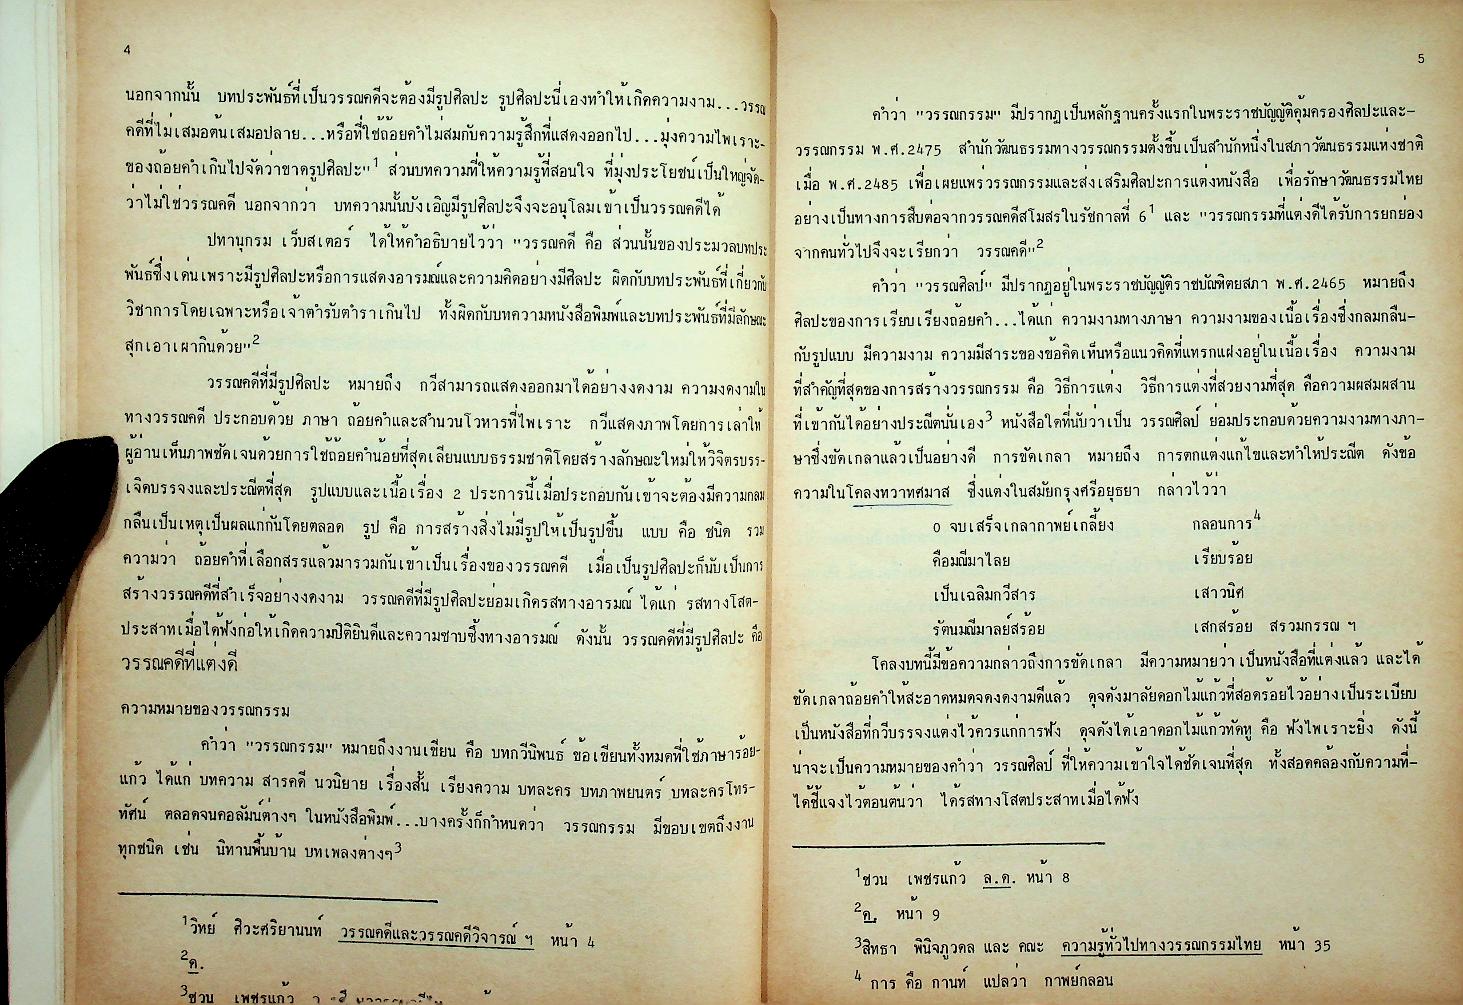 4
นอกจากนั้น บทประพันธ์ที่เป็นวรรณคดีจะต้องมีรูปศิลปะ รูปศิลปะนี่เองทำให้เกิดความงาม...วรรณ
คดีที่ไม่เสมอต้นเสมอปลาย...หรือที่ใช้ถ้อยคำไม่สมกับความรู้สึกที่แสดงออกไป...มุ่งความไพเราะ-
ของถ้อยคำเกินไปจัดว่าขาดรูปศิลปะ"1 ส่วนบทความที่ให้ความรู้ที่สอนใจ ที่มุ่งประโยชน์เป็นใหญ่จัด-
ว่าไม่ใช่วรรณคดี นอกจากว่า บทความนั้นบังเอิญมีรูปศิลปะจึงจะอนุโลมเข้าเป็นวรรณคดีได้
ปทานุกรม เว็บสเตอร์ ได้ให้คำอธิบายไว้ว่า "วรรณคดี คือ ส่วนนั้นของประมวลบทประ
พันธ์ซึ่งเด่นเพราะมีรูปศิลปะหรือการแสดงอารมณ์และความคิดอย่างมีศิลปะ ผิดกับบทประพันธ์ที่เกี่ยวกับ
วิชาการโดยเฉพาะหรือเจ้าตำรับตำราเกินไป ทั้งผิดกับบทความหนังสือพิมพ์และบทประพันธ์ที่มีลักษณะ
สุกเอาเผากินด้วย"2
วรรณคดีที่มีรูปศิลปะ หมายถึง กวีสามารถแสดงออกมาได้อย่างงดงาม ความงดงามใน
ทางวรรณคดี ประกอบด้วย ภาษา ถ้อยคำและสำนวนโวหารที่ไพเราะ กวีแสดงภาพโดยการเล่าให้
ผู้อ่านเห็นภาพชัดเจนด้วยการใช้ถ้อยคำน้อยที่สุดเลียนแบบธรรมชาติโดยสร้างลักษณะใหม่ให้วิจิตรบรร-
เจิดบรรจงและประณีตที่สุด รูปแบบและเนื้อเรื่อง 2 ประการนี้เมื่อประกอบกันเข้าจะต้องมีความกลม
กลืนเป็นเหตุเป็นผลแก่กันโดยตลอด รูป คือ การสร้างสิ่งไม่มีรูปให้เป็นรูปขึ้น แบบ คือ ชนิด รวม
ความว่า ถ้อยคำที่เลือกสรรแล้วมารวมกันเข้าเป็นเรื่องของวรรณคดี เมื่อเป็นรูปศิลปะก็นับเป็นการ
สร้างวรรณคดีที่สำเร็จอย่างงดงาม วรรณคดีที่มีรูปศิลปะย่อมเกิดรสทางอารมณ์ ได้แก่ รสทางโสต-
ประสาทเมื่อได้ฟังก่อให้เกิดความปีติยินดีและความซาบซึ้งทางอารมณ์ ดังนั้น วรรณคดีที่มีรูปศิลปะ คือ
วรรณคดีที่แต่งดี
ความหมายของวรรณกรรม
คำว่า "วรรณกรรม" หมายถึงงานเขียน คือ บทกวีนิพนธ์ ข้อเขียนทั้งหมดที่ใช้ภาษาร้อย-
แก้ว ได้แก่ บทความ สารคดี นวนิยาย เรื่องสั้น เรียงความ บทละคร บทภาพยนตร์ บทละครโทร-
ทัศน์ ตลอดจนคอลัมน์ต่างๆ ในหนังสือพิมพ์...บางครั้งก็กำหนดว่า วรรณกรรม มีขอบเขตถึงงาน
ทุกชนิด เช่น นิทานพื้นบ้าน บทเพลงต่างๆ3
1วิทย์ ศิวะศริยานนท์ วรรณคดีและวรรณคดีวิจารณ์ ฯ หน้า 4
2ค.
3ชวน เพชรแก้ว
5
คำว่า "วรรณกรรม" มีปรากฏเป็นหลักฐานครั้งแรกในพระราชบัญญัติคุ้มครองศิลปะและ-
วรรณกรรม พ.ศ.2475 สำนักวัฒนธรรมทางวรรณกรรมตั้งขึ้นเป็นสำนักหนึ่งในสภาวัฒนธรรมแห่งชาติ
เมื่อ พ.ศ.2485 เพื่อเผยแพร่วรรณกรรมและส่งเสริมศิลปะการแต่งหนังสือ เพื่อรักษาวัฒนธรรมไทย
อย่างเป็นทางการสืบต่อจากวรรณคดีสโมสรในรัชกาลที่ 61 และ "วรรณกรรมที่แต่งดีได้รับการยกย่อง
จากคนทั่วไปจึงจะเรียกว่า วรรณคดี"2
คำว่า "วรรณศิลป์" มีปรากฏอยู่ในพระราชบัญญัติราชบัณฑิตยสภา พ.ศ.2465 หมายถึง
ศิลปะของการเรียบเรียงถ้อยคำ...ได้แก่ ความงามทางภาษา ความงามของเนื้อเรื่องซึ่งกลมกลืน-
กับรูปแบบ มีความงาม ความมีสาระของข้อคิดเห็นหรือแนวคิดที่แทรกแฝงอยู่ในเนื้อเรื่อง ความงาม
ที่สำคัญที่สุดของการสร้างวรรณกรรม คือ วิธีการแต่ง วิธีการแต่งที่สวยงามที่สุด คือความผสมผสาน
ที่เข้ากันได้อย่างประณีตนั่นเอง3 หนังสือใดที่นับว่าเป็น วรรณศิลป์ ย่อมประกอบด้วยความงามทางภา-
ษาซึ่งขัดเกลาแล้วเป็นอย่างดี การขัดเกลา หมายถึง การตกแต่งแก้ไขและทำให้ประณีต ดังข้อ
ความในโคลงทวาทศมาส ซึ่งแต่งในสมัยกรุงศรีอยุธยา กล่าวไว้ว่า
๐ จบเสร็จเกลากาพย์เกลี้ยง กลอนการ4
คือมณีมาไลย เรียบร้อย
เป็นเฉลิมกวีสาร เสาวนิศ
รัตนมณีมาลย์สร้อย เสกสร้อย สรวมกรรณ ฯ
โคลงบทนี้มีข้อความกล่าวถึงการขัดเกลา มีความหมายว่าเป็นหนังสือที่แต่งแล้ว และได้
ขัดเกลาถ้อยคำให้สะอาดหมดจดงดงามดีแล้ว ดุจดังมาลัยดอกไม้แก้วที่สอดร้อยไว้อย่างเป็นระเบียบ
เป็นหนังสือที่กวีบรรจงแต่งไว้ควรแก่การฟัง ดุจดังได้เอาดอกไม้แก้วทัดหู คือ ฟังไพเราะยิ่ง ดังนี้
น่าจะเป็นความหมายของคำว่า วรรณศิลป์ ที่ให้ความเข้าใจได้ชัดเจนที่สุด ทั้งสอดคล้องกับความที่-
ได้ชี้แจงไว้ตอนต้นว่า ได้รสทางโสตประสาทเมื่อได้ฟัง
1ชวน เพชรแก้ว ล.ค. หน้า 8
2ค. หน้า 9
3สิทธา พินิจภูวดล และ คณะ ความรู้ทั่วไปทางวรรณกรรมไทย หน้า 35
4 การ คือ กานท์ แปลว่า กาพย์กลอน